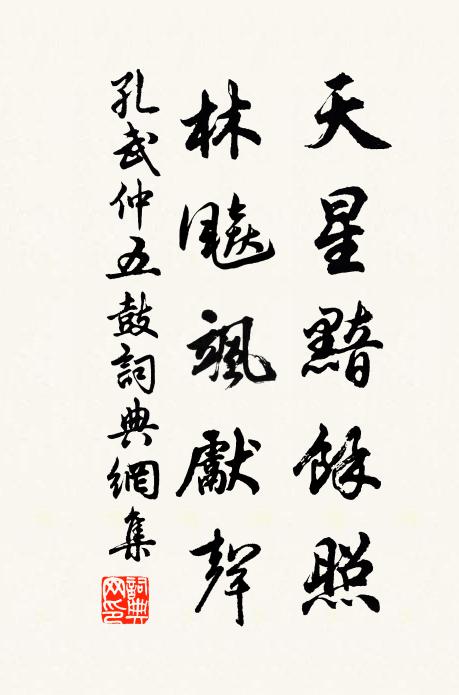 天星黯餘照
林飈颯獻聲
孔武仲五鼓詞典網集
詞典
网印